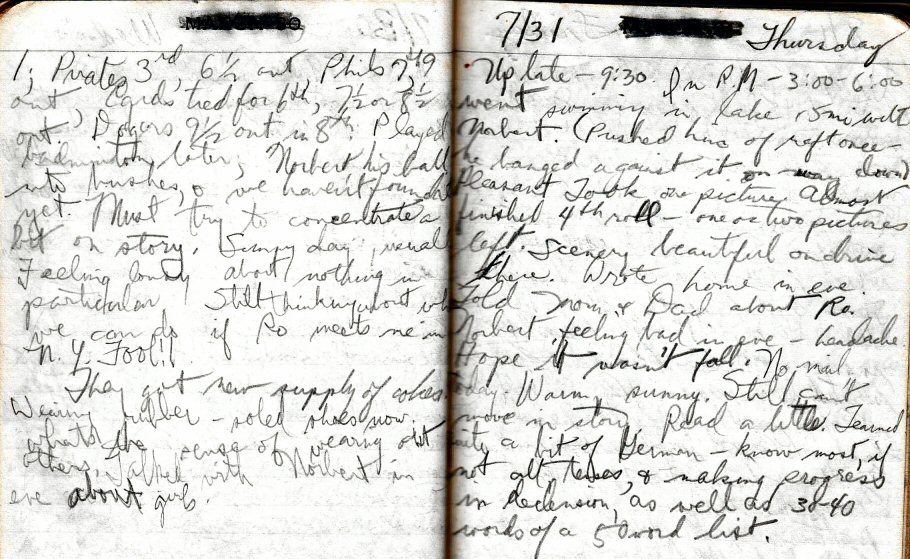 1; Pirates 3rd, 6½ out, Phils 7, 9
out, Cards tied for 6th, 7½ or 8½
out. Dogers 9½ out in 8th. Played
badminton later; Norbert his ball
into bushes, & we haven't found it
yet. Must try to concentrate a
bit on story. Sunny day, usual.
Feeling lonely about nothing in
particular. Still thinking about what
we can do if Ro meets me in
N.Y. Fool!!
They got new supply of cokes.
Wearing rubber-soled shoes now.
what's the sense of wearing out
others. Talked with Norbert in
eve about girls.
7/31
Thursday
Up late - 9:30. In P.M - 3:00-6:00
went swimming in lake 15 mi with
Norbert. (Pushed him of raft once-
he banged against it on way down)
Pleasant. Took one picture. Almost
finished 4th roll - one or two pictures
left. Scenery beautiful on drive
there. Wrote home in eve.
Told Mom & Dad about Ro.
Norbert feeling bad in eve - headache
Hope it wasn't fall. No mail
today. Warm, sunny. Still can't
move in story. Read a little. Learned
quite a bit of German - know most, if
not all, tenses, & making progress
in declension, as well as 30-40
words of a 50 word list.